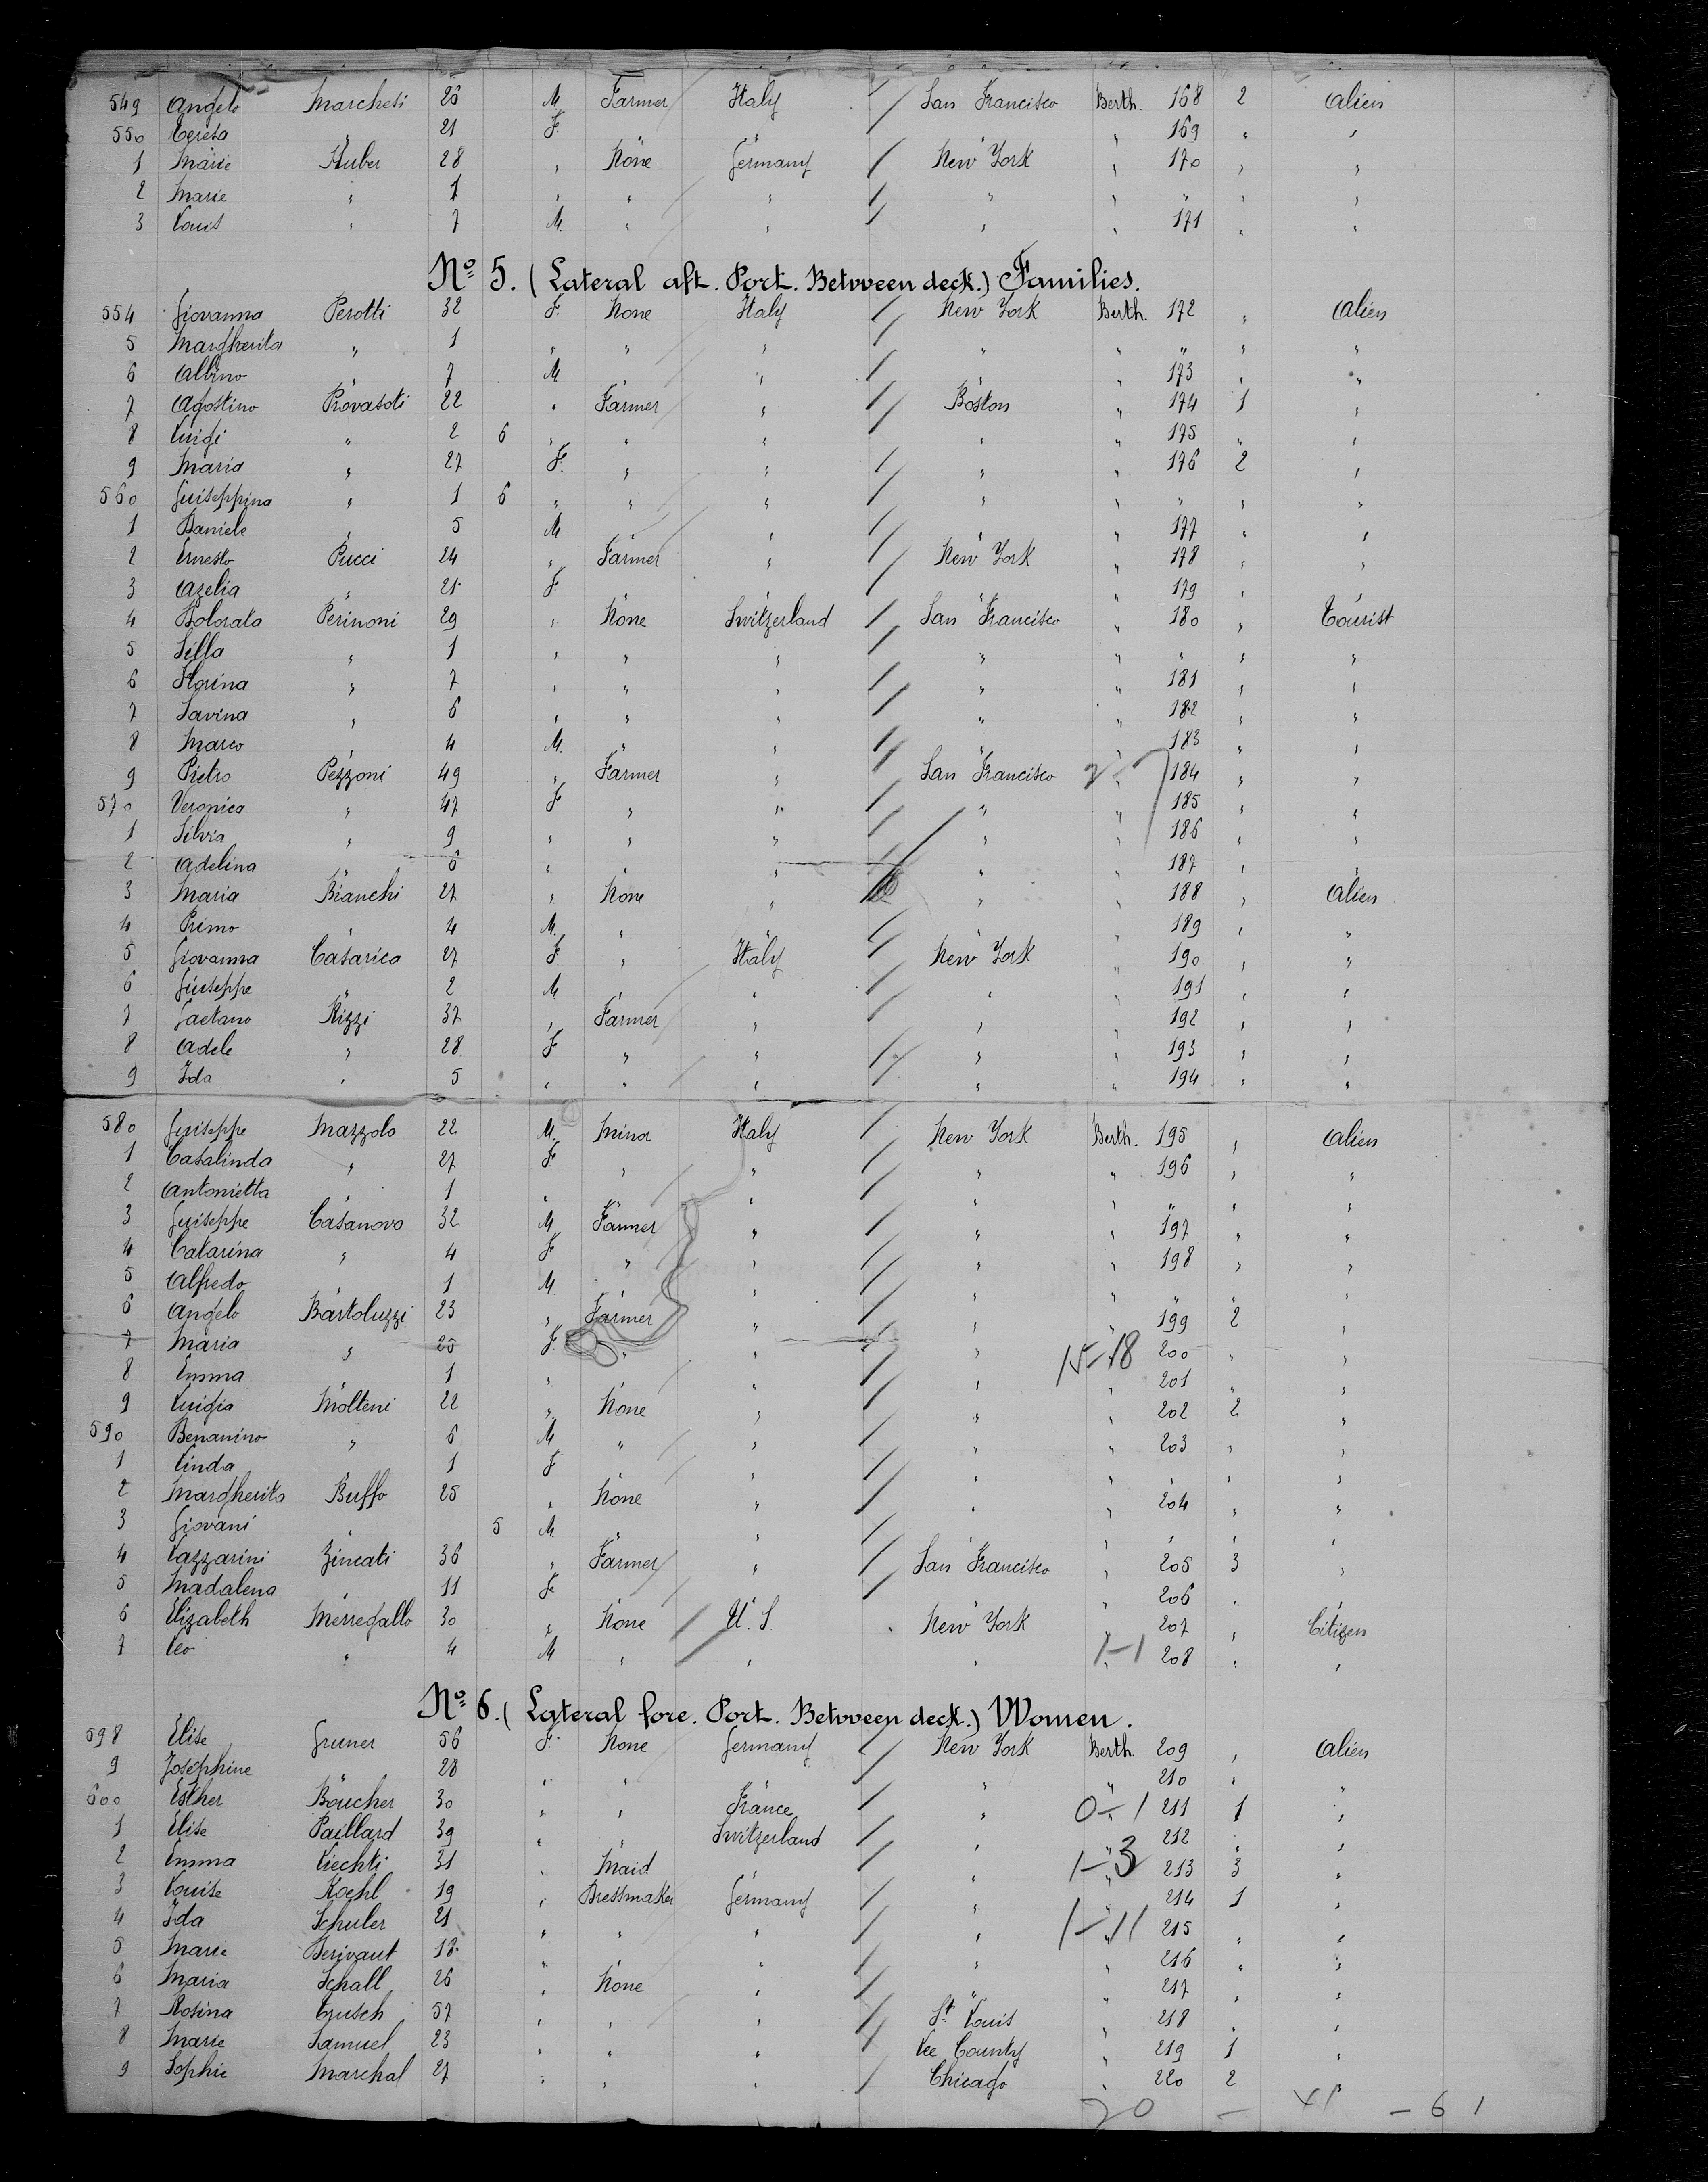 549 Angelo Marchesi 26 M. Farmer Italy San Francisco Berth. 168 2 Alien
550 Teresa " 21 F. " " 169 " "
1 Marie Huber 28 " None Germany New York " 170 " "
2 Marie " 1 " " " " " " " "
3 Louis " 7 M. " " " " 171 " "
No 5. (Lateral aft. Port. Between deck.) Families.
554 Giovanna Perotti 32 F. None Italy New York Berth. 172 " Alien
5 Margherita " 1 " " " " " " " "
6 Albino " 7 M " " " 173 " "
7 Agostino Provasoti 22 " Farmer " Boston " 174 1 "
8 Luigi " 2 6 " " " " " 175 " "
9 Maria " 27 F. " " " " 176 2 "
560 Guiseppina " 1 6 " " " " " " " "
1 Daniele " 5 M " " " 177 " "
2 Ernesto Pucci 24 " Farmer " New York " 178 " "
3 Azelia " 21 F. " " " 179 " "
4 Bolorata Perinoni 29 " None Switzerland San Francisco " 180 " Tourist
5 Silla " 1 " " " " " " " "
6 Florina " 7 " " " " " 181 " "
7 Savina " 6 " " " " " 182 " "
8 Marco " 4 M. " " " " 183 " "
9 Pietro Pezzoni 49 " Farmer " San Francisco " 184 " "
570 Veronica " 47 F " " " " 185 " "
1 Silvia " 9 " " " " " 186 " "
2 Adelina " 6 " " " " 187 " "
3 Maria Bianchi 27 " None " " 188 " Alien
4 Primo " 4 M. " " " " 189 " "
5 Giovanna Casarica 27 F. " Italy New York " 190 " "
6 Giuseppe " 2 M. " " " " 191 " "
7 Gaetano Rizzi 37 " Farmer " " " 192 " "
8 Adele " 28 F " " " " 193 " "
9 Ida " 5 " " " " " 194 " "
580 Guiseppe Mazzolo 22 M. Minor Italy New York Berth. 195 " Alien
1 Casalinda " 27 F " " " " 196 " "
2 Antonietta " 1 " " " " " " "
3 Guiseppe Casanova 32 M Farmer " " " 197 " "
4 Catarina " 4 F " " " " 198 " "
5 Alfredo " 1 M. " " " " " "
6 Angelo Bartoluzzi 23 " Farmer " " " 199 2 "
7 Maria " 25 F. " " " 15-18 200 " "
8 Emma " 1 " " " " 201 " "
9 Luigia Molteni 22 " None " " " 202 2 "
590 Benanino " 6 M " " " " 203 " "
1 Linda " 1 F " " " " " "
2 Margherita Buffo 25 " None " " " 204 " "
3 Giovani 5 M. " " " " " "
4 Lazzarini Zincati 36 " Farmer " San Francisco " 205 3 "
5 Madalena " 11 F. 206 " "
6 Elizabeth Merregallo 30 " None U. S. New York " 207 " Citizen
7 Leo " 4 M " " " 1-1 208 " "
No 6. (Lateral fore. Port. Between deck.) Women.
598 Elise Gruner 56 F. None Germany New York Berth. 209 " Alien
9 Joséphine 28 " " " " 210 " "
600 Esther Boucher 30 " " France " 0-1 211 1 "
1 Elise Paillard 39 " " Switzerland " 212 " "
2 Emma Liechti 31 " Maid " " 1-3 213 3 "
3 Louise Koehl 19 " Dressmaker Germany " " 214 1 "
4 Ida Schuler 21 " " " " 1-11 215 " "
5 Marie Berivaut 18 " " " " 216 " "
6 Maria Schall 26 " None " " " 217 " "
7 Rosina Trusch 57 " " " St. Louis " 218 " "
8 Marie Samuel 23 " " " Lee County " 219 1 "
9 Sophie Marchal 27 " " " Chicago " 220 2 "
20 - 41 - 61